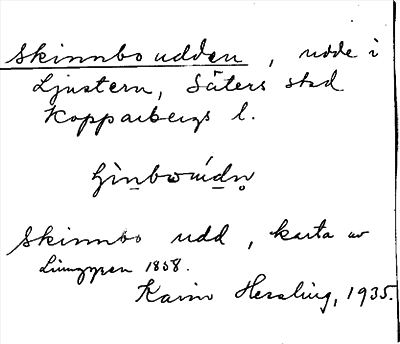 Skinnboudden, udde i
Ljustern, Säters stad
Kopparbergs l.
Skinnbo udd, karta av
1858.
Karin Hessling, 1935.